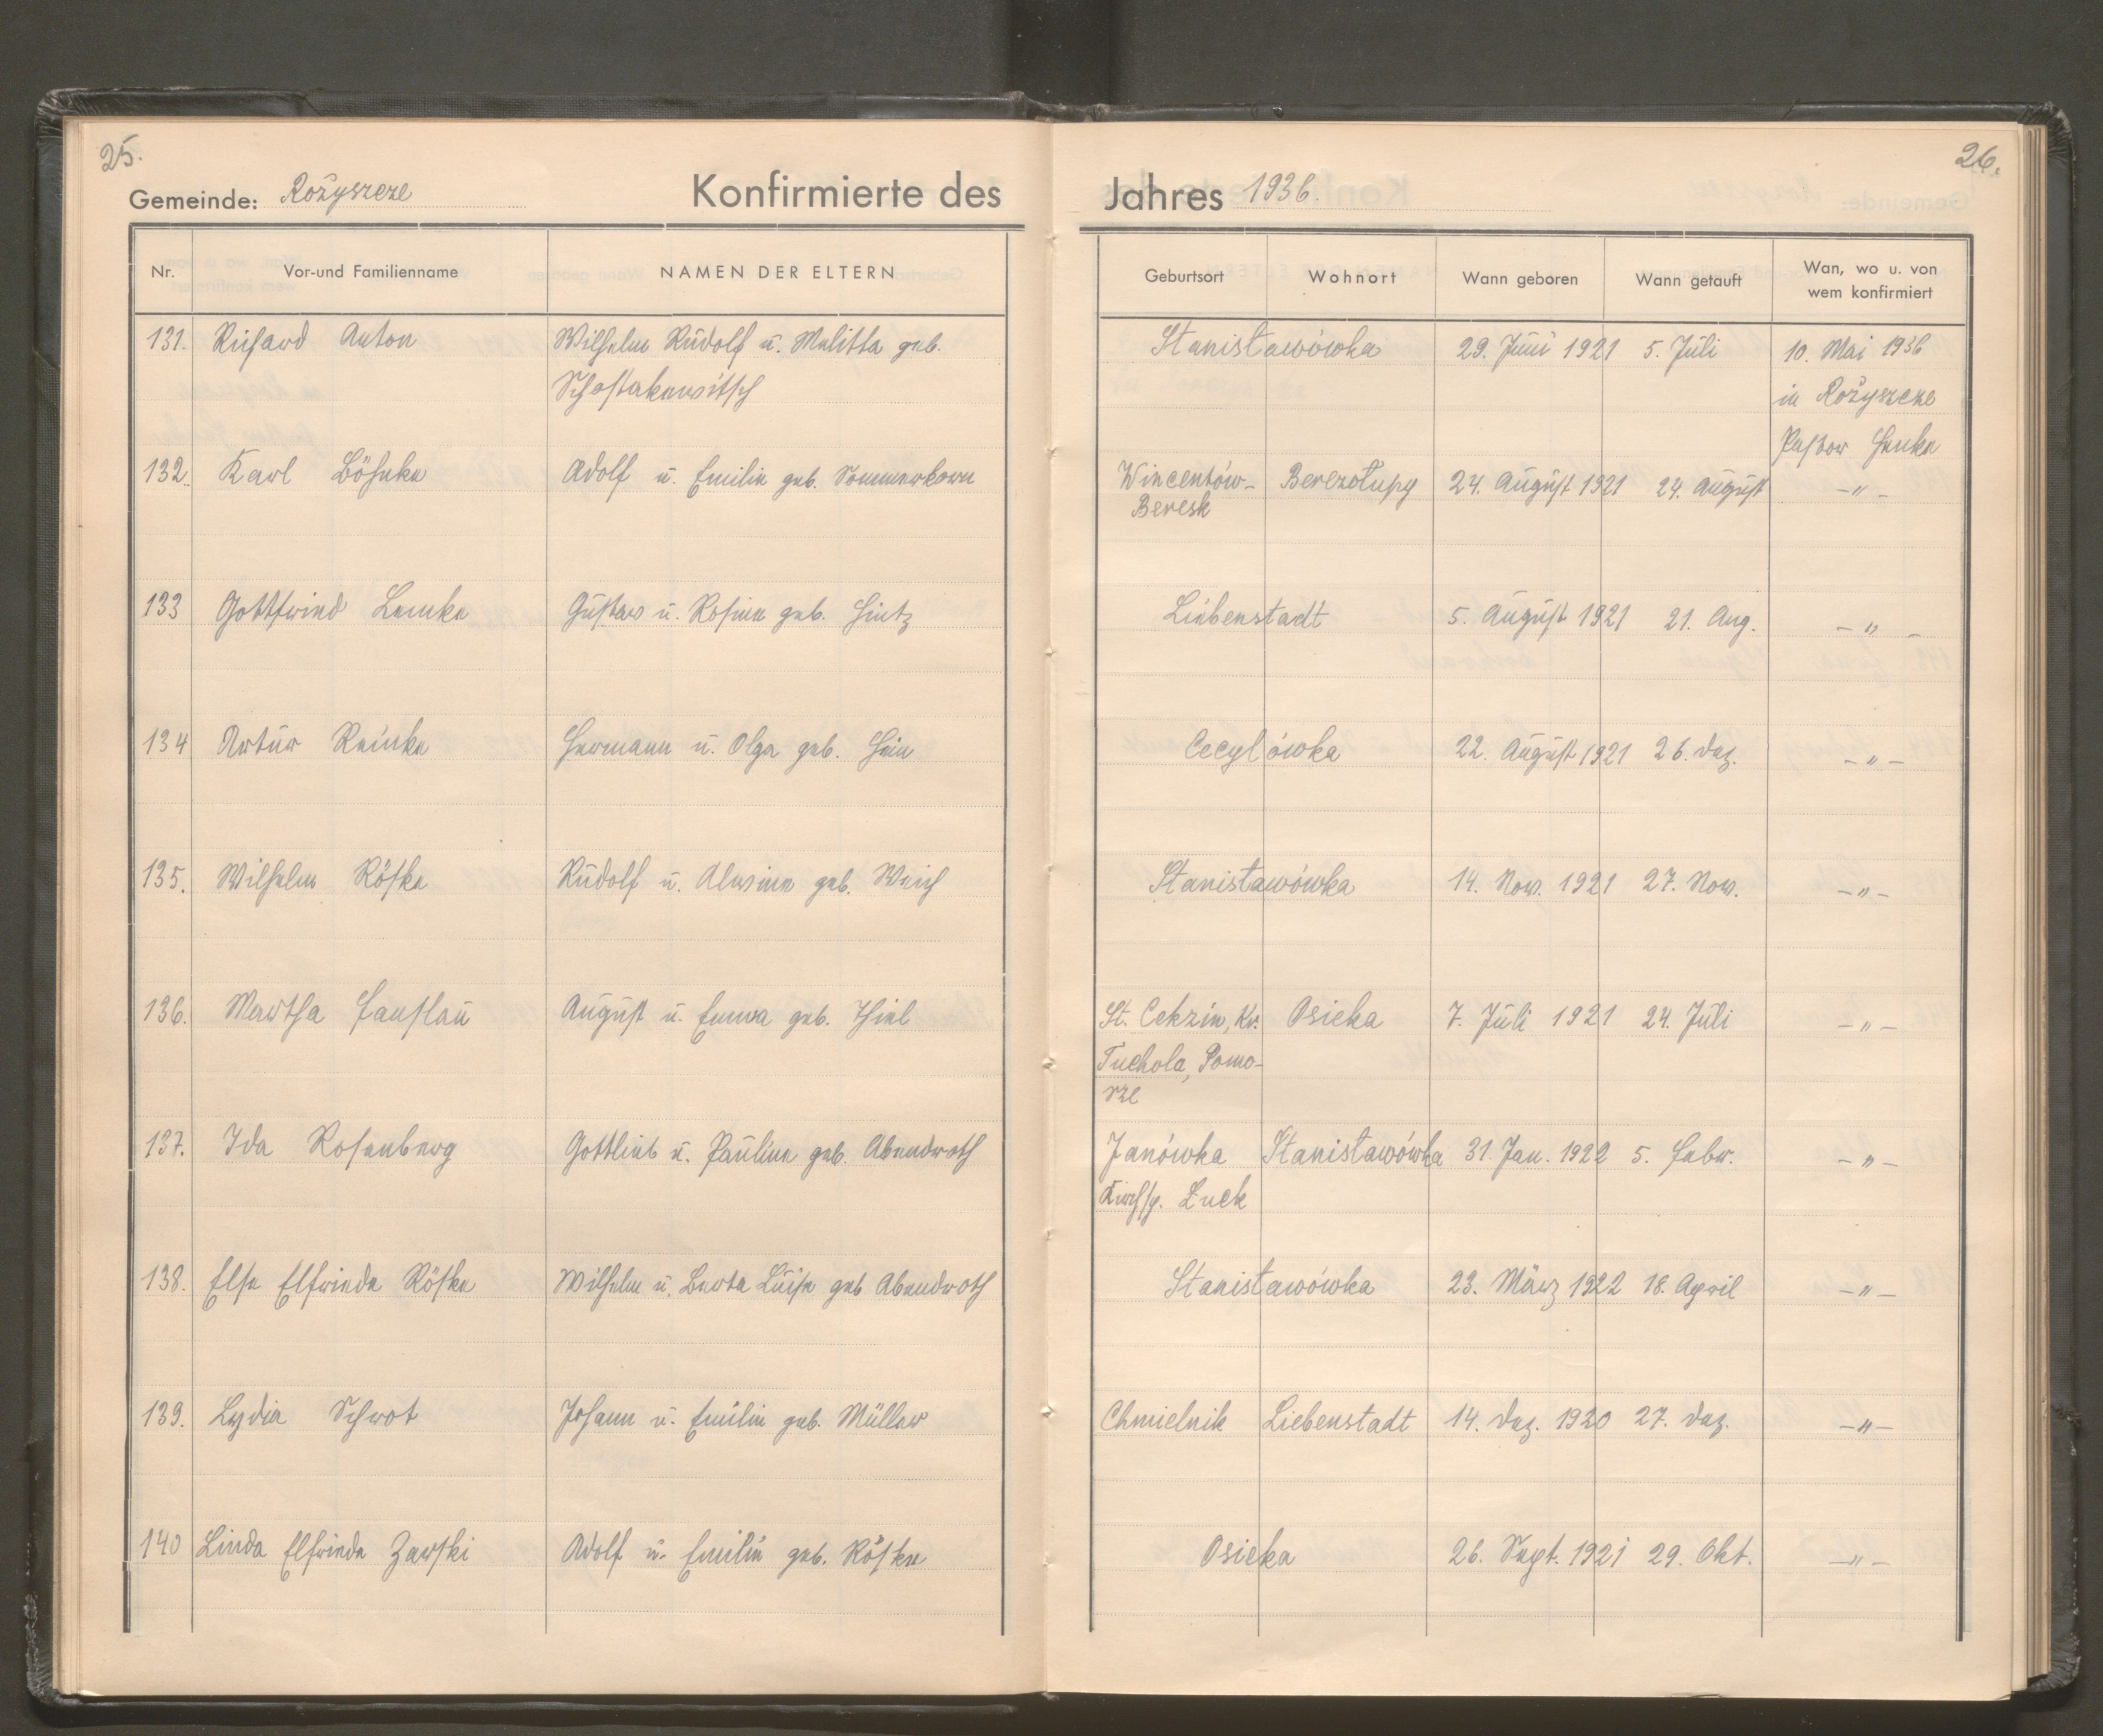 25.
Gemeinde: Rożyszcze Konfirmierte des
Nr. Vor-und Familienname NAMEN DER ELTERN
131. Richard Anton Wilhelm Rudolf u. Melitta geb.
Schostakowitsch
132. Karl Böhnke Adolf u. Emilie geb. Sommerkorn
133 Gottfried Lemke Gustav u. Rosine geb. Hintz
134 Artur Reinke Hermann u. Olga geb. Hein
135. Wilhelm Röske Rudolf u. Alwine geb. Weich
136. Martha Fauslau August u. Emma geb. Thiel
137. Ida Rosenberg Gottlieb u. Pauline geb. Abendroth
138. Else Elfriede Röske Wilhelm u. Berta Luise geb Abendroth
139. Lydia Schrot Johann u. Emilie geb. Müller
140 Linda Elfriede Zarski Adolf u. Emilie geb. Röske
26.
Jahres 1936.
Geburtsort Wohnort Wann geboren Wann getauft Wan, wo u. von
wem konfirmiert
Stanisławówka 29. Juni 1921 5. Juli 10. Mai 1936
in Rożyszcze
Pastor Henke
Wincentów- Berezołupy 24. August 1921 24. August -"-
Beresk
Liebenstadt 5. August 1921 21. Aug. -"-
Cecylówka 22. August 1921 26. Dez. -"-
Stanisławówka 14. Nov. 1921 27. Nov. -"-
St. Cekzin, Kr. Osieka 7. Juli 1921 24. Juli -"-
Tuchola, Pomo-
rze
Janówka Stanisławówka 31. Jan. 1922 5. Febr. -"-
Kirchsp. Łuck
Stanisławówka 23. März 1922 18. April -"-
Chmielnik Liebenstadt 14. Dez. 1920 27. Dez. -"-
Osieka 26. Sept. 1921 29. Okt. -"-